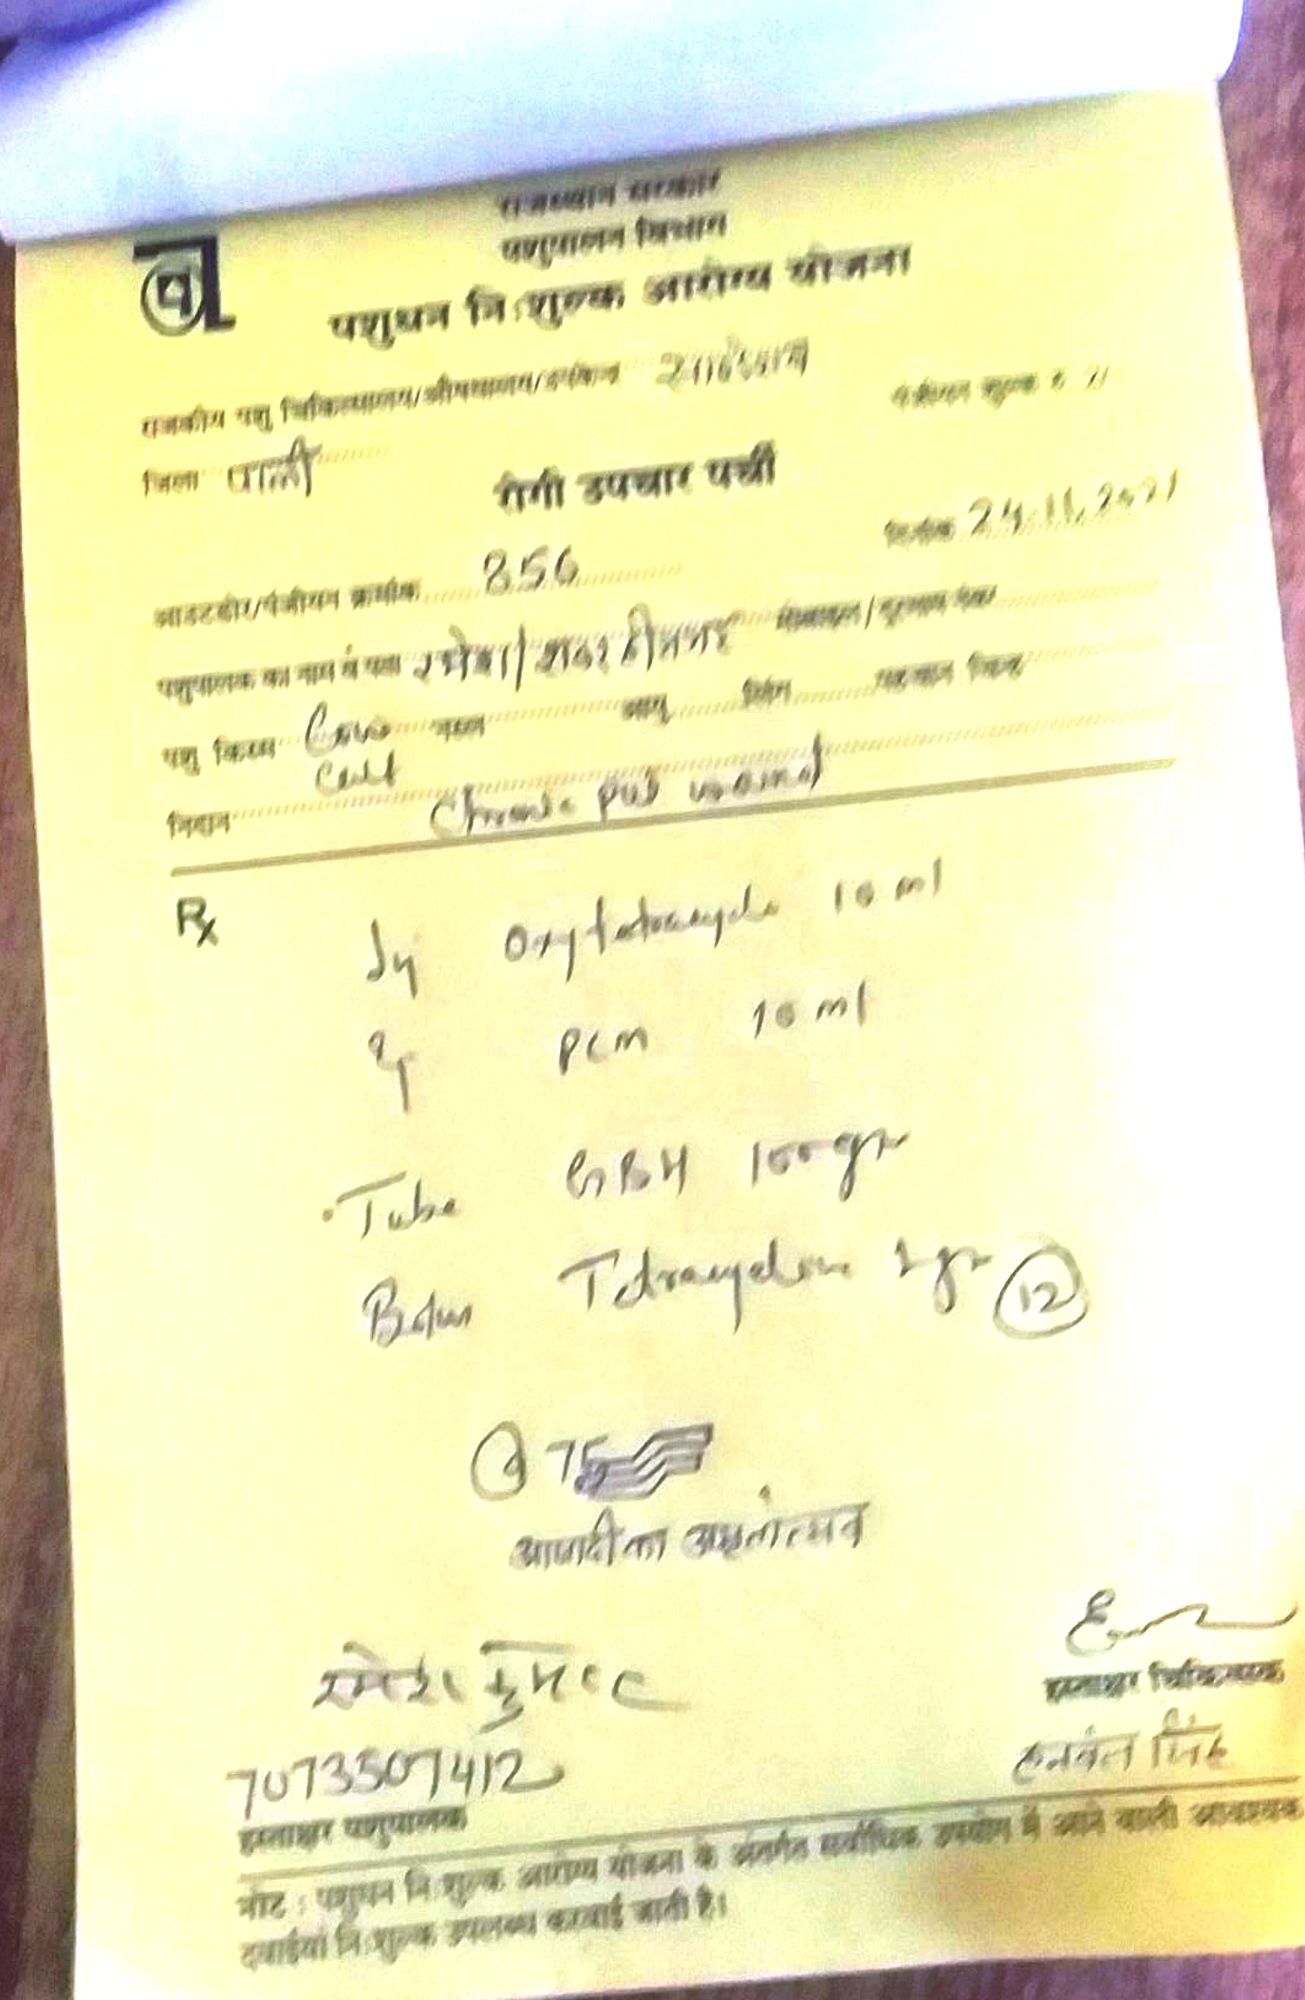 राजस्थान सरकार
पशुपालन विभाग
पशुधन निःशुल्क आरोग्य योजना
राजकीय पशु चिकित्सालय/औषधालय/उपकेन्द्र
पंजीयन शुल्क रु. 2/
जिला पाली
रोगी उपचार पर्ची
दिनांक 24.11.2021
आउटडोर/पंजीयन क्रमांक 856
पशुपालक का नाम व पता रमेश/ मोबाइल/दूरभाष नंबर
पशु किस्म Cow नस्ल आयु लिंग पहचान चिन्ह
Calf
निदान Chronic pus wound
Rx
Inj Oxytetracycle 10 ml
Inj PCM 10 ml
Tube GBH 100 gm
Bolus Tetracycline 1 gm 12
75
आजादी का अमृतोत्सव
रमेश कुमार
7073507412
हस्ताक्षर पशुपालक
हस्ताक्षर चिकित्सक
हनवंत सिंह
नोट : पशुधन निःशुल्क आरोग्य योजना के अंतर्गत सर्वाधिक उपयोग में आने वाली आवश्यक
दवाईयां निःशुल्क उपलब्ध करवाई जाती है।